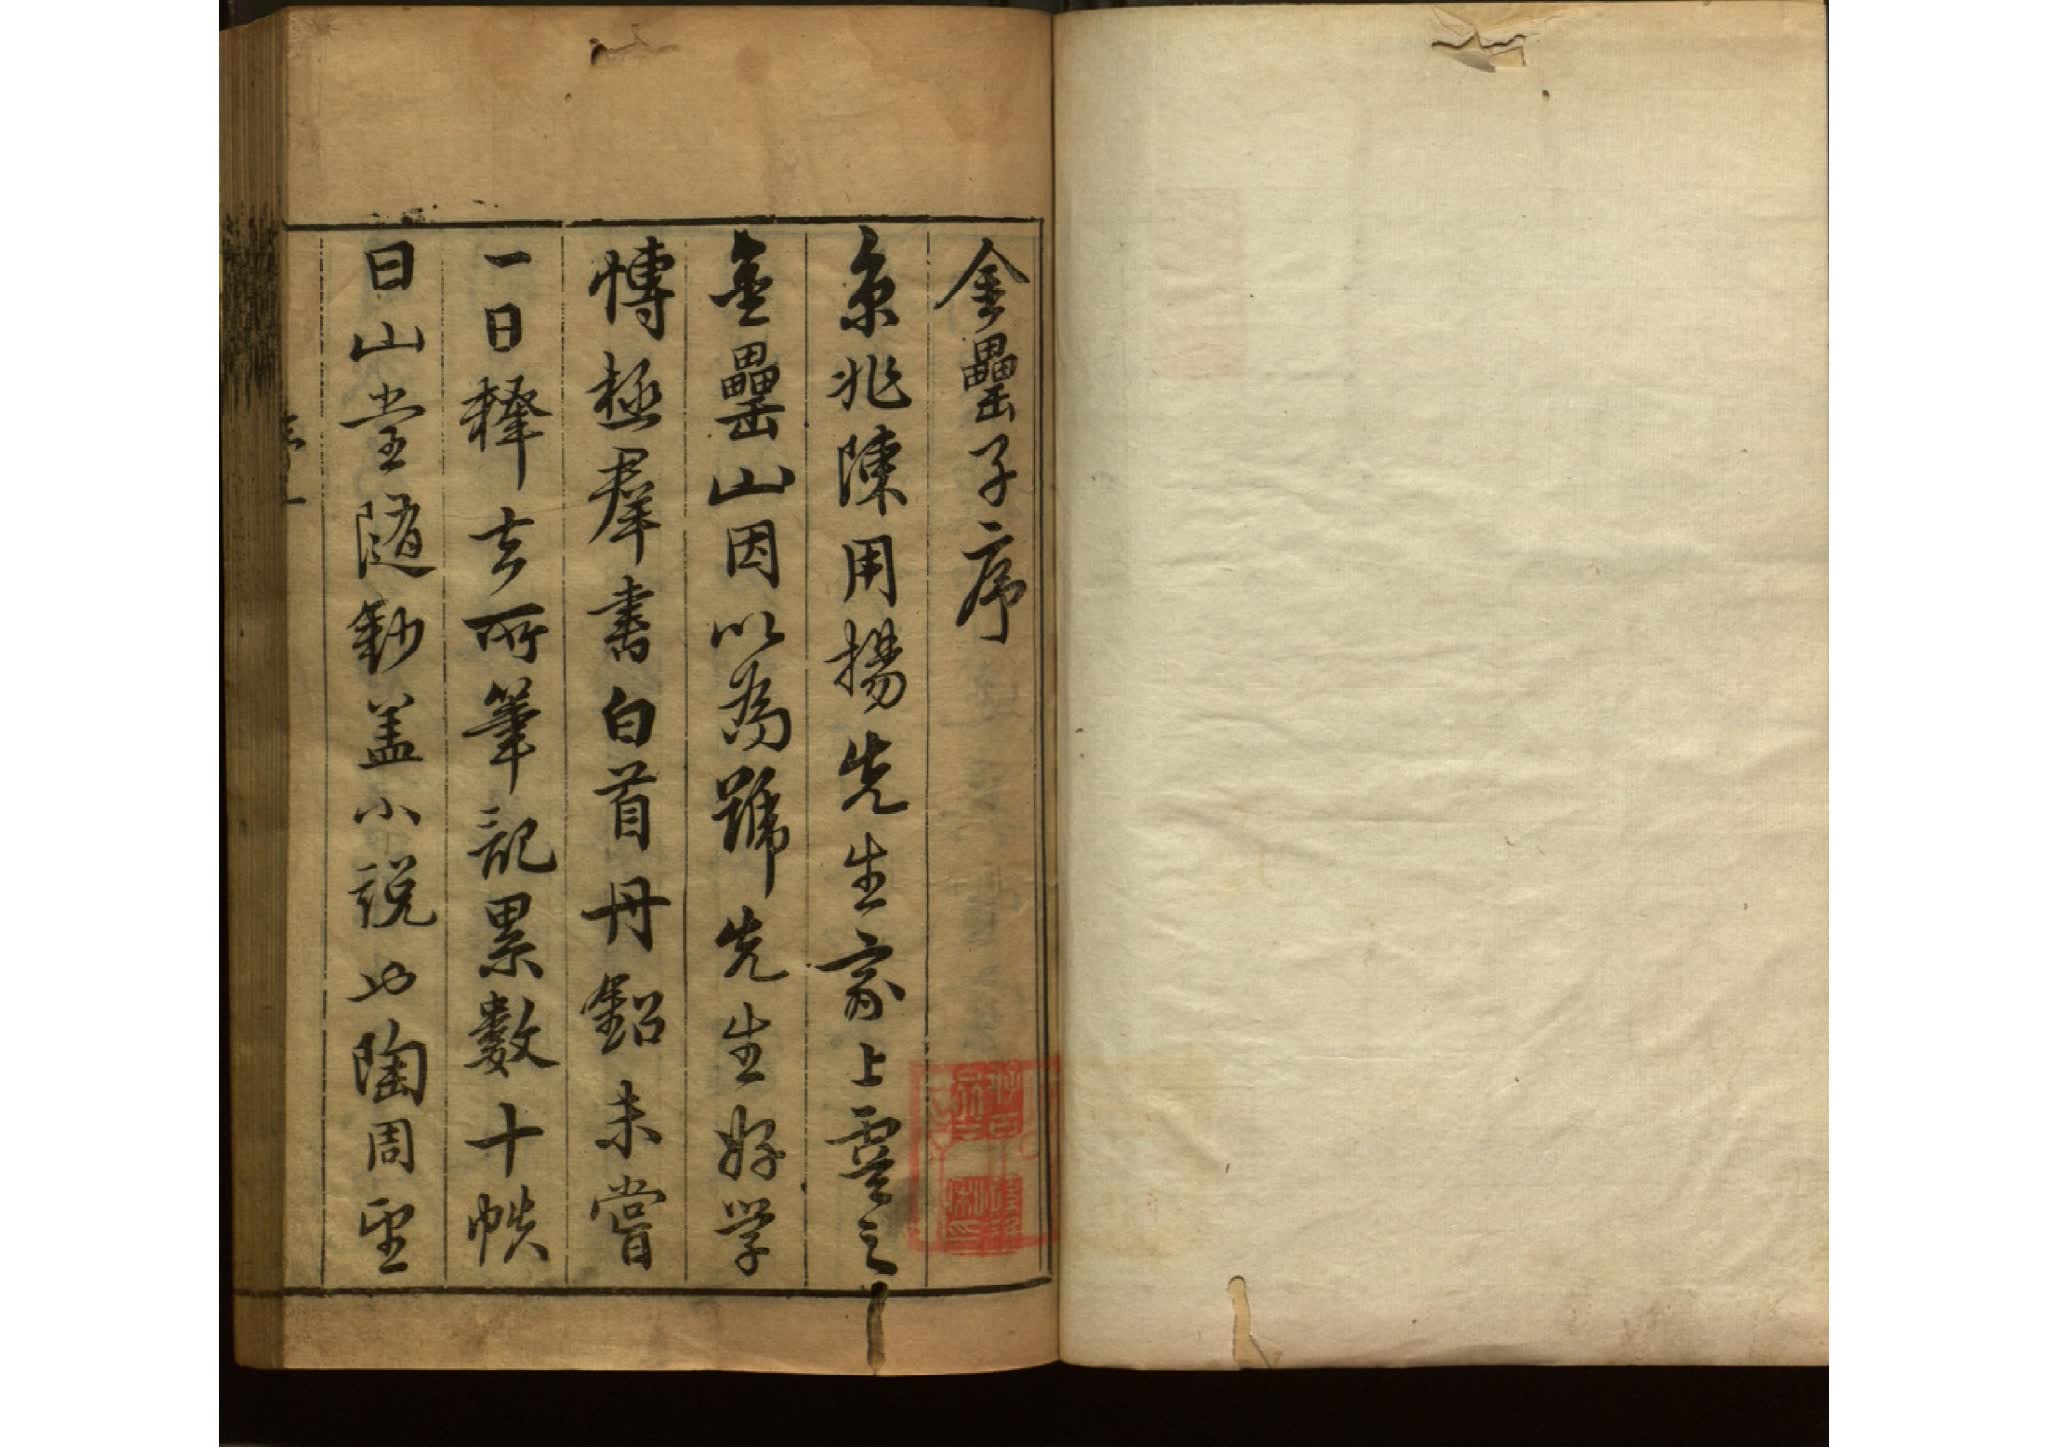 金罍子序
京兆陳用揚先生家上虞之
金罍山因以為號先生好学
愽極羣書白首丹鉛未嘗
一日釋去所筆記累數十帙
曰山堂随鈔盖小說也陶周望